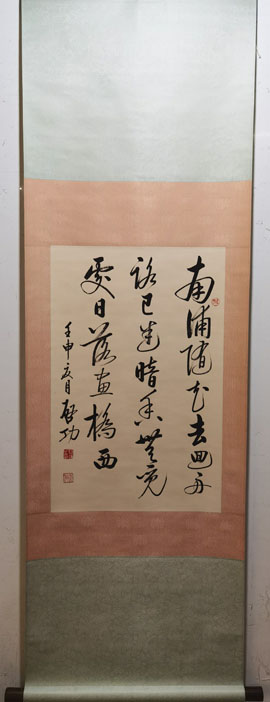 南浦随花去回舟
路已迷暗香无觅
处日落画桥西
壬申夏月启功